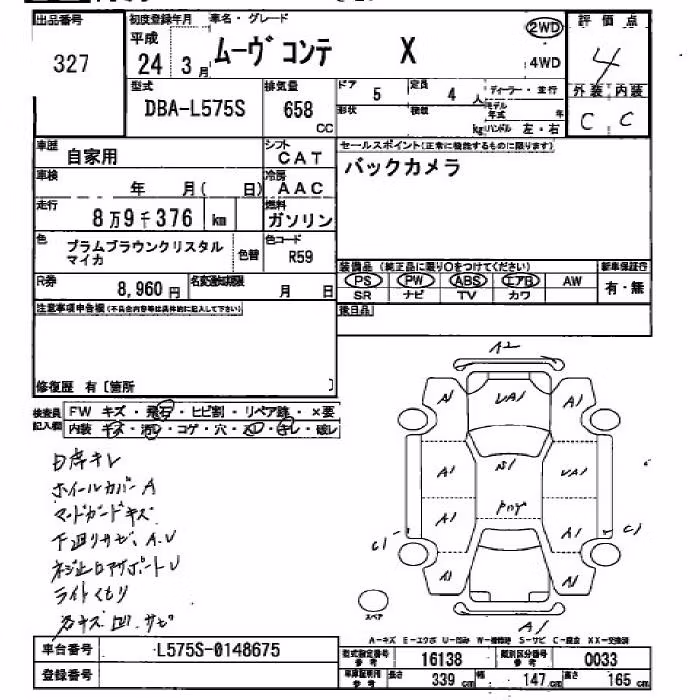 出品番号
327
初度登録年月
平成
24 3月
車名・グレード
ムーヴ コンテ X
2WD
4WD
評価点
4
外装 内装
C C
型式
DBA-L575S
排気量
658
CC
ドア・
形状
5
定員
積載
4 人
kg
ディーラー・並行
モデル年式 年
ハンドル 左・右
車歴
自家用
シフト
CAT
セールスポイント(正常に機能するものに限ります)
バックカメラ
車検
年 月( 日)
冷房
AAC
走行
8万9千376 km
燃料
ガソリン
色
プラムブラウンクリスタル
マイカ
色替
色コード
R59
R券
8,960 円
名変通知期限
月 日
装備品 (純正品に限り○をつけてください)
PS PW ABS エアB AW
SR ナビ TV カワ
新車保証付
有・無
後日品
注意事項申告欄(不具合内容等は具体的に記入して下さい)
修復歴 有〔箇所 〕
検査員
記入欄
FW キズ・飛石・ヒビ割・リペア跡・×要
内装 キズ・汚レ・コゲ・穴・スレ・キレ・破レ
日岸キレ
ホイールカバーA
マッドガードキズ
下廻リサビ、A.U
ライトくもり
凹.サビ
A2
A1
UA1
A1
A1
S1
UA1
A1
A1
A1
A1
C1
C1
A1
スペア
A-キズ E-エクボ U-凹み W-補修跡 S-サビ C-腐食 XX-交換済
車台番号
L575S-0148675
登録番号
型式指定番号
参考
16138
類別区分番号
参考
0033
車庫証明用
参考
長さ
339 cm
幅
147 cm
高さ
165 cm